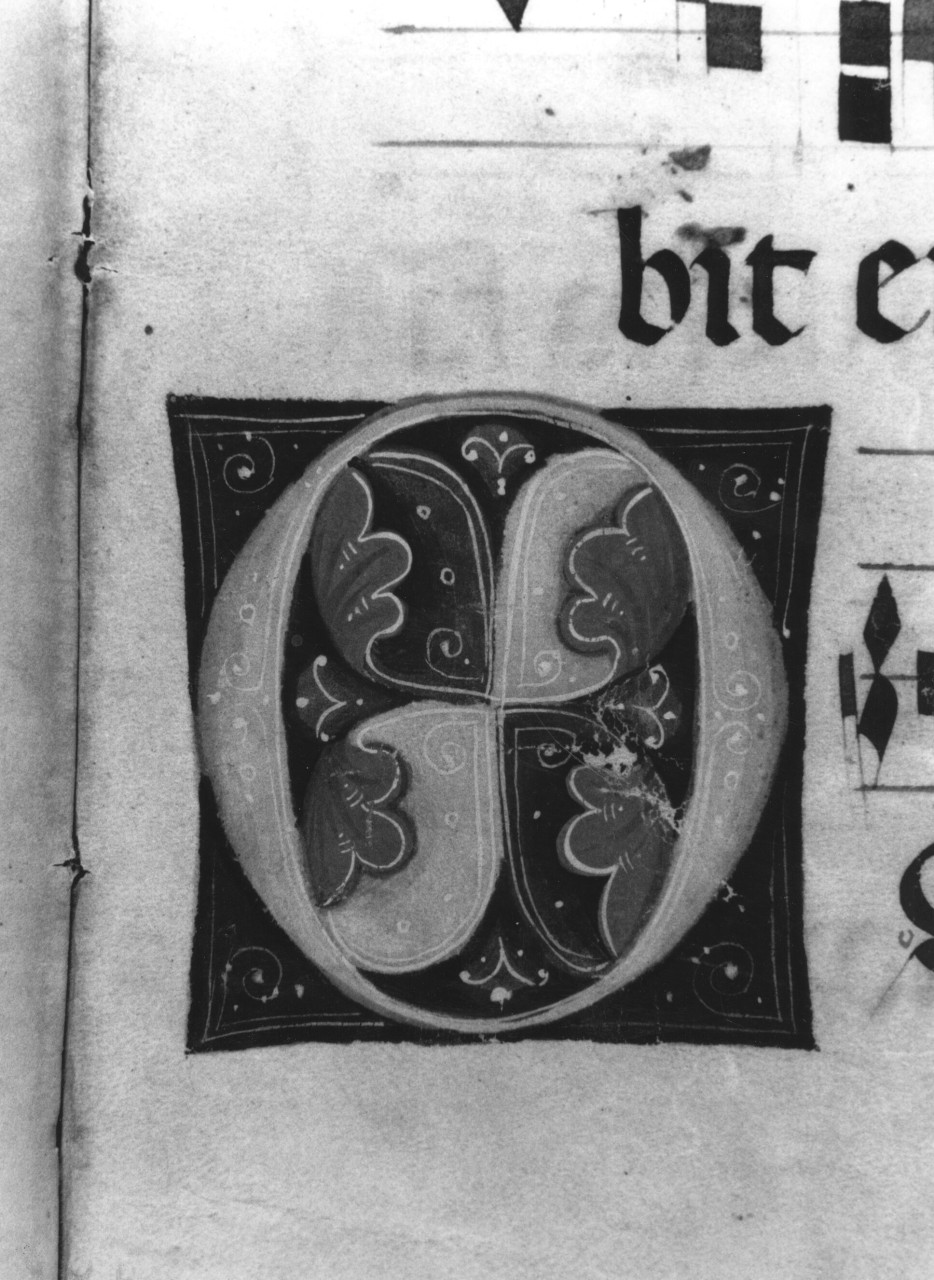 bit e
O